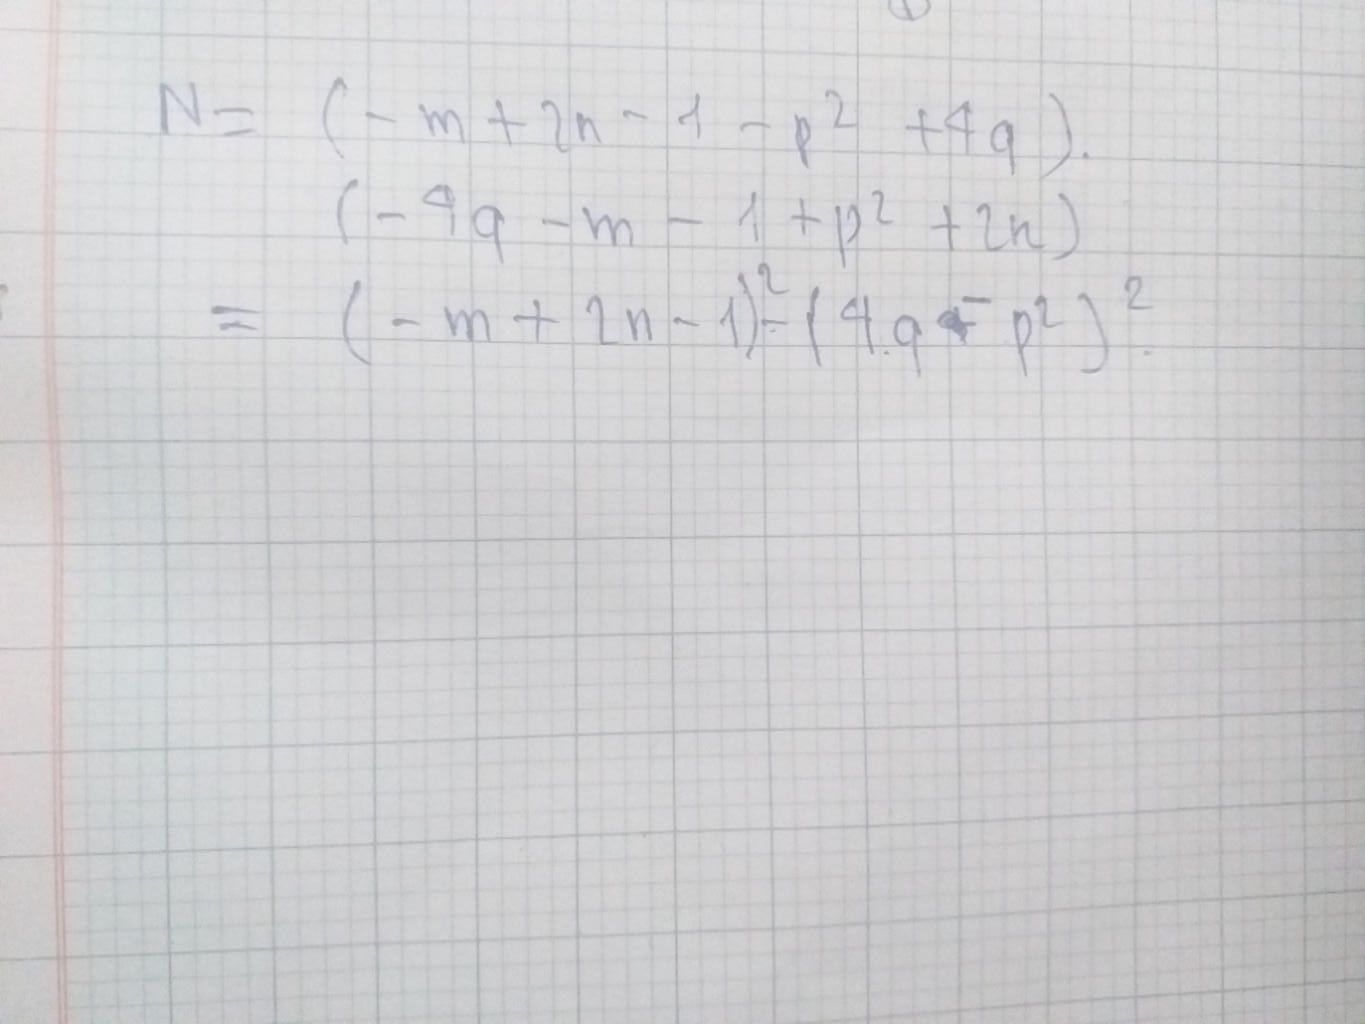 N = (- m + 2n - 1 - p² + 4q).
(- 4q - m - 1 + p² + 2n)
= (- m + 2n - 1)² - (4q - p²)²